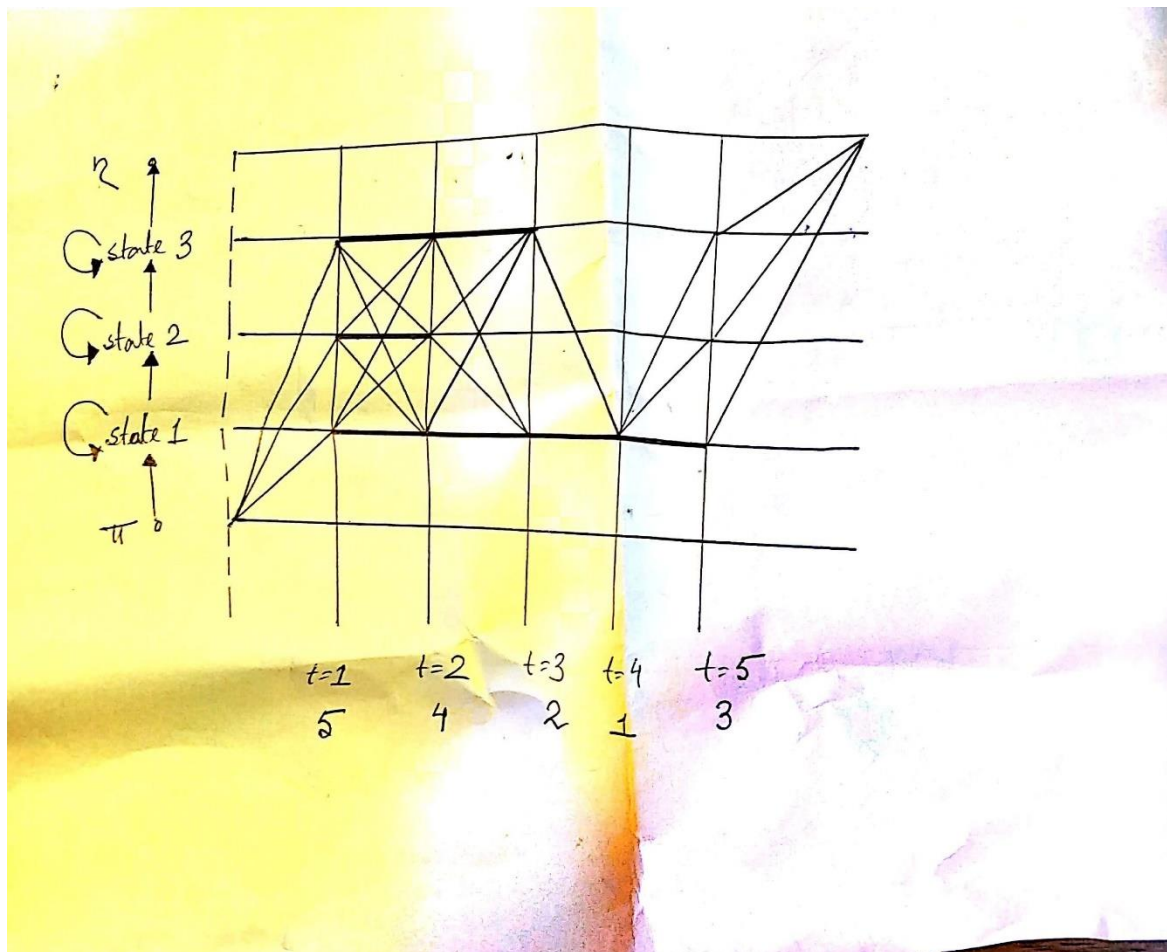 η
state 3
state 2
state 1
π
t=1 t=2 t=3 t=4 t=5
5 4 2 1 3